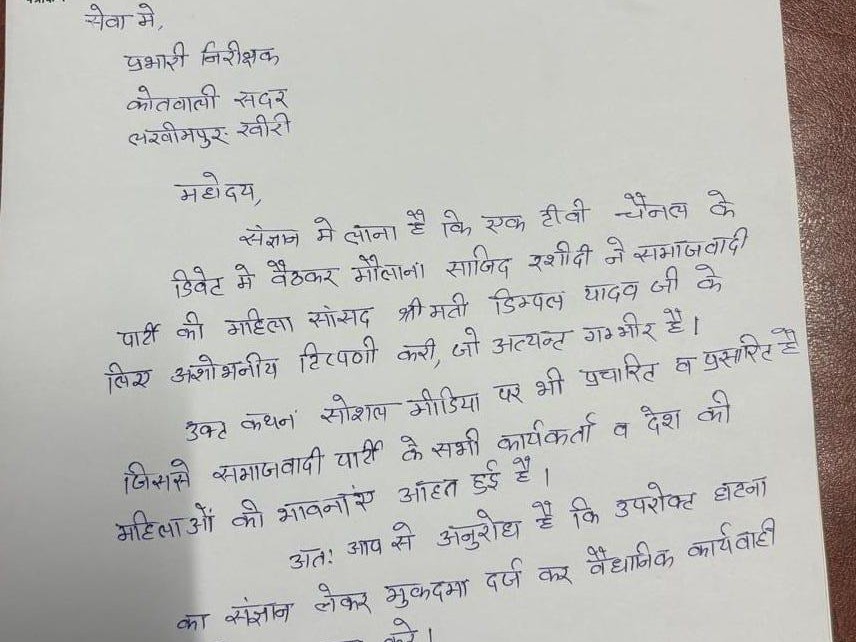 सेवा मे,
प्रभारी निरीक्षक
कोतवाली सदर
लखीमपुर-खीरी
महोदय,
संज्ञान मे लाना है कि एक टीवी चैनल के
डिवेट मे बैठकर मौलाना साजिद रशीदी ने समाजवादी
पार्टी की महिला सांसद श्रीमती डिम्पल यादव जी के
लिए अशोभनीय टिप्पणी करी, जो अत्यन्त गम्भीर है।
उक्ट कथन सोशल मीडिया पर भी प्रचारित व प्रसारित है
जिससे समाजवादी पार्टी के सभी कार्यकर्ता व देश की
महिलाओं की भावनाएं आहत हुई है।
अतः आप से अनुरोध है कि उपरोक्ट घटना
का संज्ञान लेकर मुकदमा दर्ज कर वैधानिक कार्यवाही
करे।